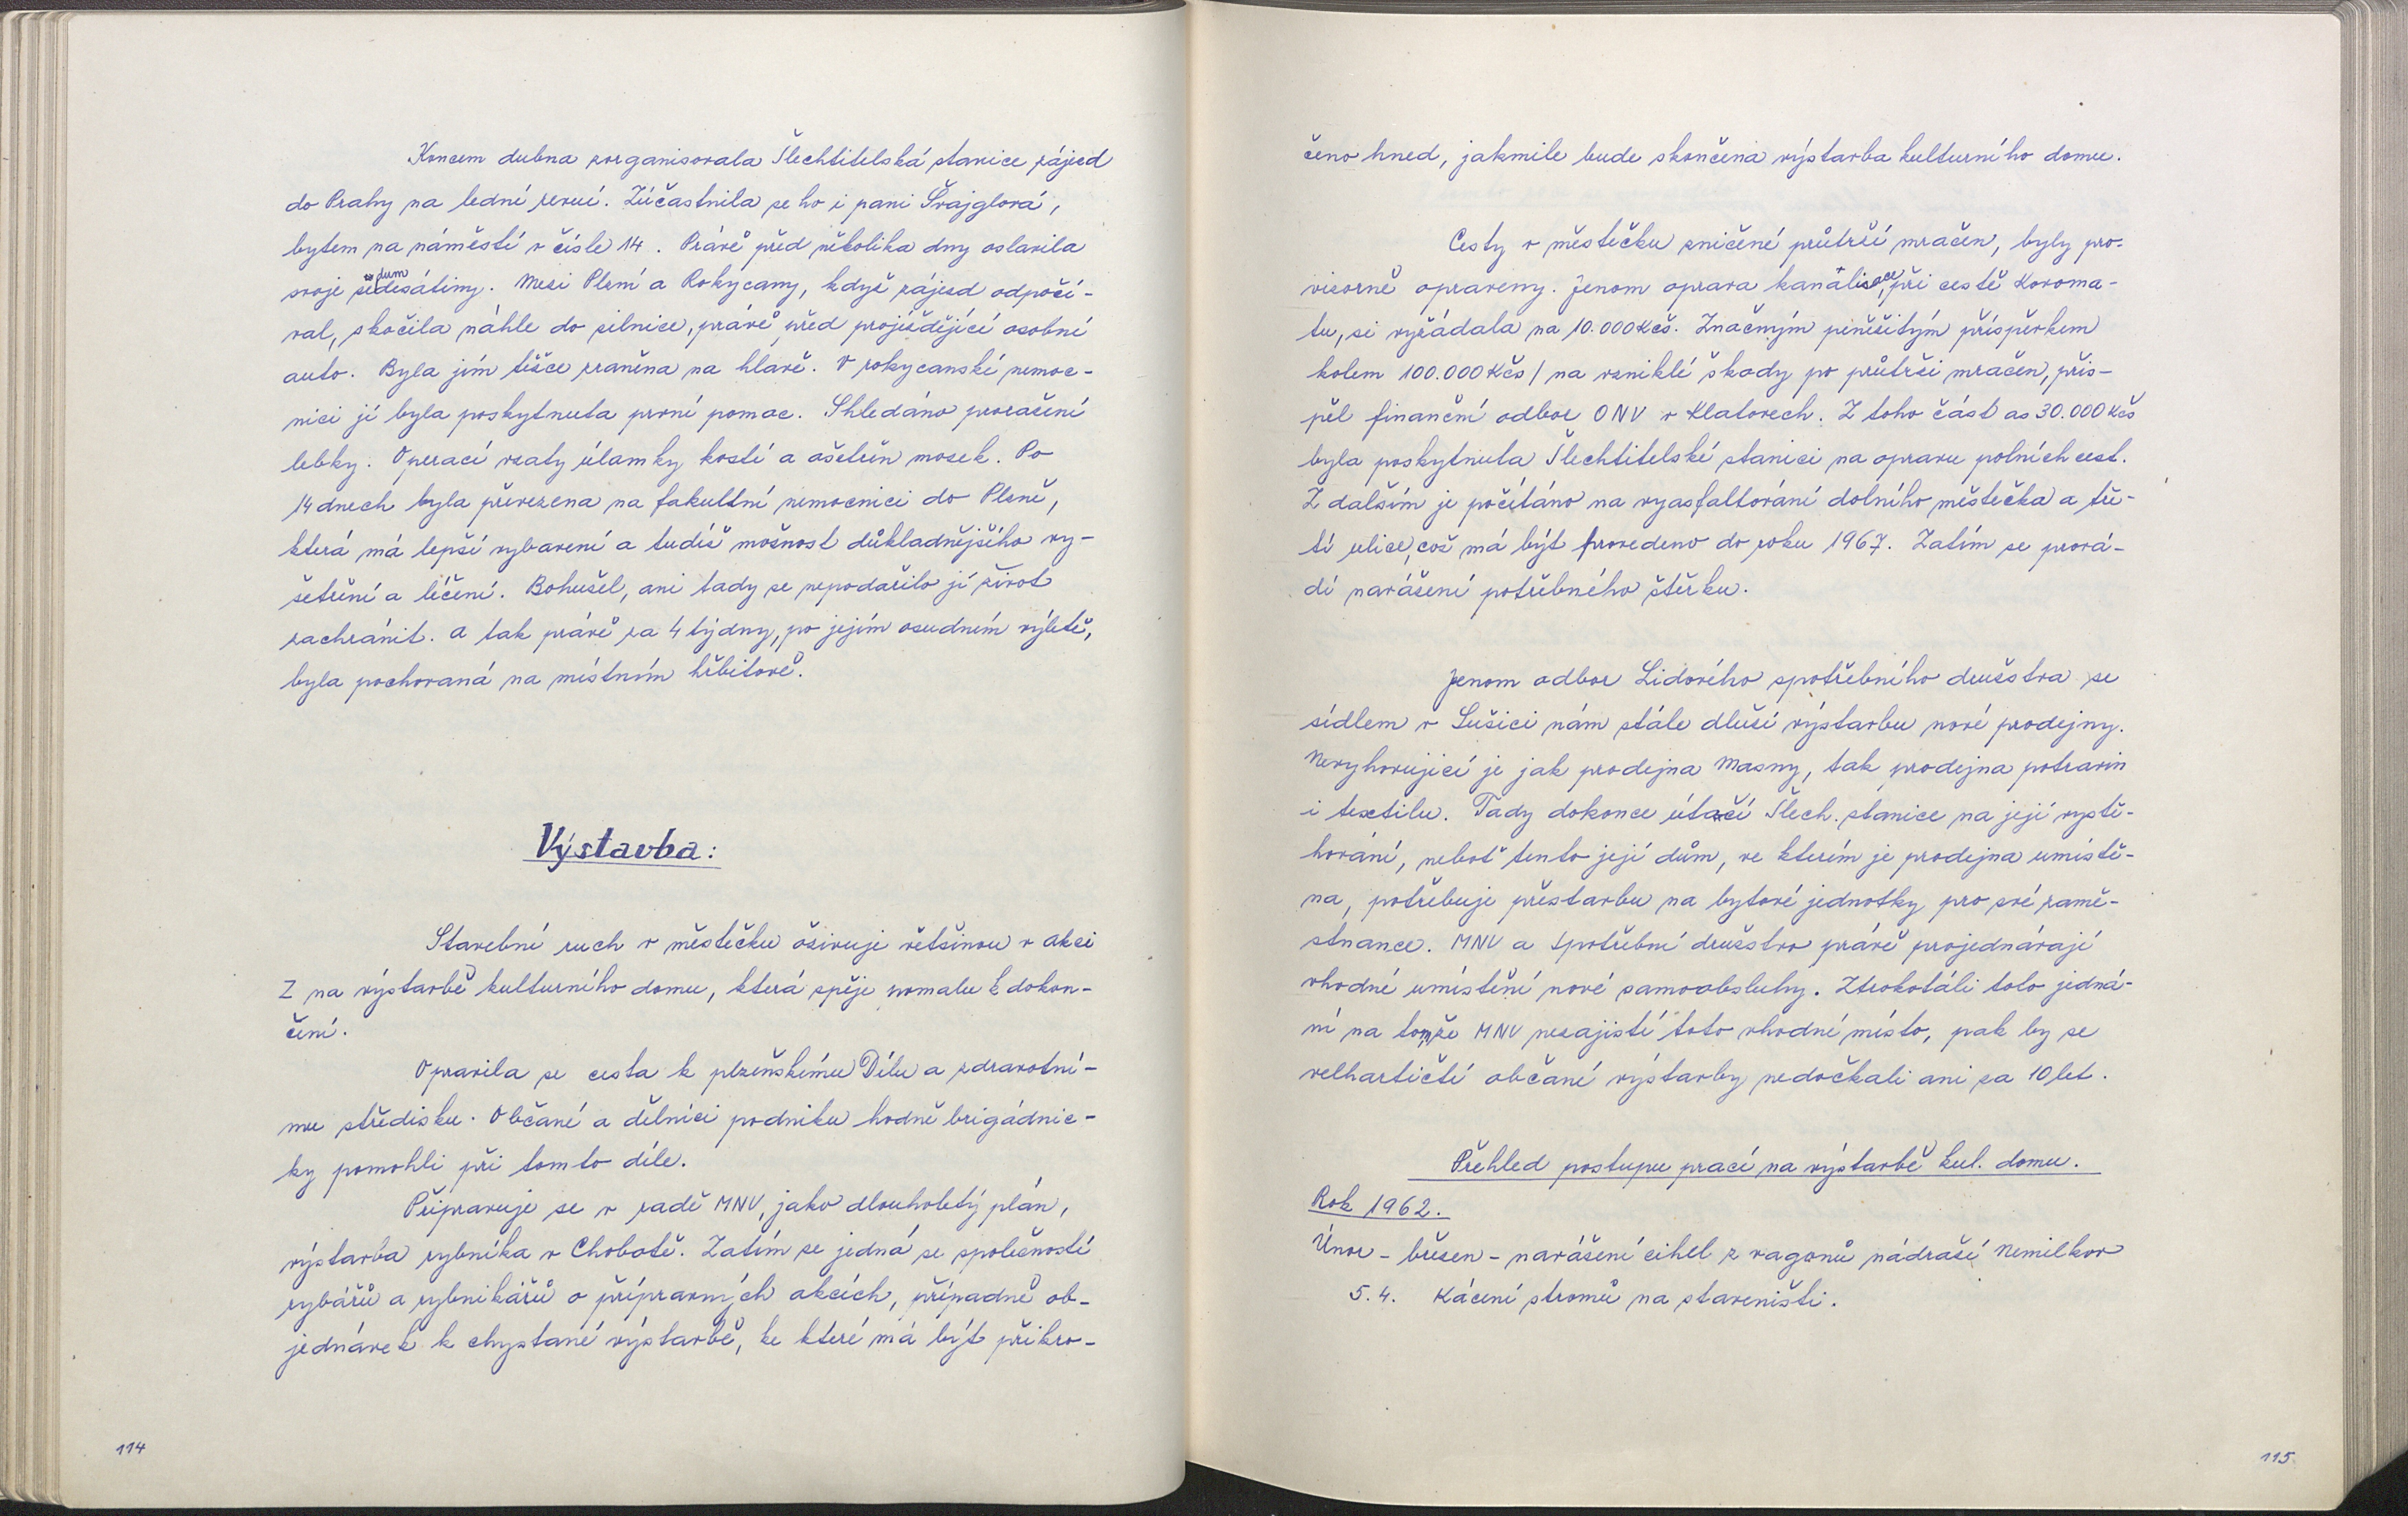 Koncem dubna zorganisovala Šlechtitelská stanice zájezd
do Prahy na lední revui. Zúčastnila se ho i paní Švajglová,
bytem na náměstí v čísle 14. Právě před několika dny oslavila
svoje sedumdesátiny. Mezi Plzní a Rokycany, když zájezd odpočí-
val, skočila náhle do silnice, právě před projíždějící osobní
auto. Byla jím těžce zraněna na hlavě. V rokycanské nemoc-
nici jí byla poskytnuta první pomoc. Shledáno proražení
lebky. Operací vzaty úlamky kostí a ošetřen mozek. Po
14 dnech byla převezena na fakultní nemocnici do Plzně,
která má lepší vybavení a tudíž možnost důkladnějšího vy-
šetření a léčení. Bohužel, ani tady se nepodařilo jí život
zachránit. A tak právě za 4 týdny, po jejím osudném výletě,
byla pochovaná na místním hřbitově.
Výstavba:
Stavební ruch v městečku oživuje většinou v akci
Z na výstavbě kulturního domu, která spěje pomalu k dokon-
čení.
Opravila se cesta k plzeňskému Dílu a zdravotní-
mu středisku. Občané a dělníci podniku hodně brigádnic-
ky pomohli při tomto díle.
Připravuje se v radě MNV, jako dlouholetý plán,
výstavba rybníka v Chobotě. Zatím se jedná se společností
rybářů a rybnikářů o přípravných akcích, případně ob-
jednávek k chystané výstavbě, ke které má být přikro-
114
čeno hned, jakmile bude skončena výstavba kulturního domu.
Cesty v městečku zničené průtrží mračen, byly pro-
visorně opraveny. Jenom oprava kanalisace, při cestě Koroma-
tu, si vyžádala na 10.000 Kčs. Značným peněžitým příspěvkem
kolem 100.000 Kčs / na vzniklé škody po průtrži mračen, přis-
pěl finanční odbor ONV v Klatovech. Z toho část as 30.000 Kčs
byla poskytnuta Šlechtitelské stanici na opravu polních cest.
Z dalším je počítáno na vyasfaltování dolního městečka a tře-
tí ulice, což má být provedeno do roku 1967. Zatím se prová-
dí navážení potřebného štěrku.
Jenom odbor Lidového spotřebního družstva se
sídlem v Sušici nám stále dluží výstavbu nové prodejny.
Nevyhovující je jak prodejna Masny, tak prodejna potravin
i textilu. Tady dokonce útočí Šlech. stanice na její vystě-
hování, neboť tento její dům, ve kterém je prodejna umístě-
na, potřebuje přestavbu na bytové jednotky pro své zamě-
stnance. MNV a spotřební družstvo právě projednávají
vhodné umístění nové samoobsluhy. Ztrokotáli toto jedná-
ní na tom, že MNV nezajistí toto vhodné místo, pak by se
velhartičtí občané výstavby nedočkali ani za 10 let.
Přehled postupu prací na výstavbě kul. domu.
Rok 1962.
Únor - březen - navážení cihel z vagonů nádraží Nemilkov
5.4. Kácení stromů na staveništi.
115